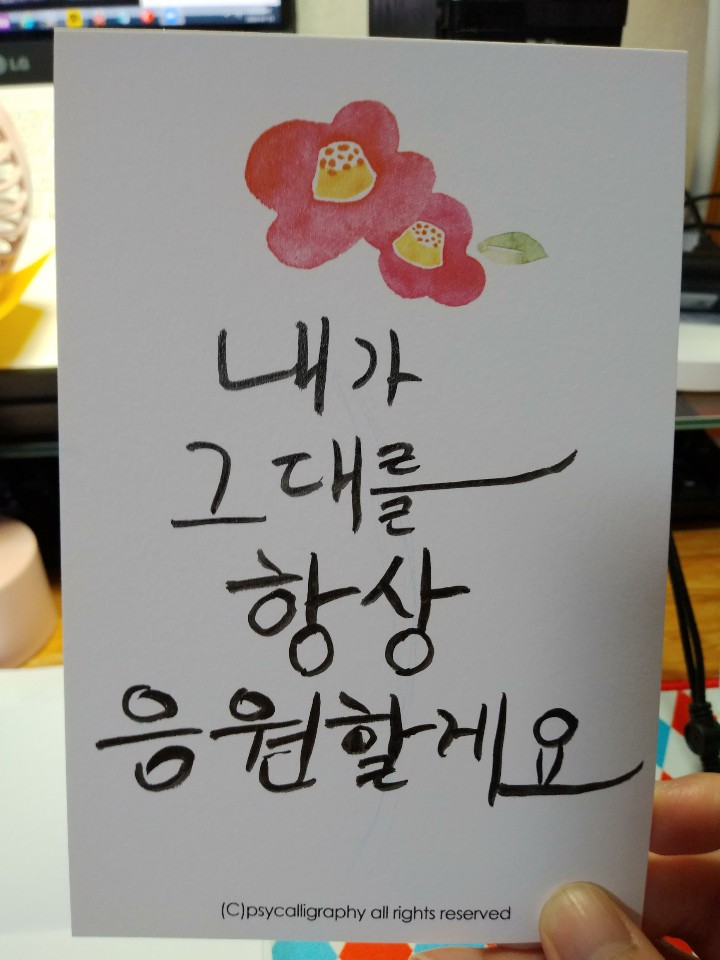 LG
내가
그대를
항상
응원할게요
(C)psycalligraphy all rights reserved